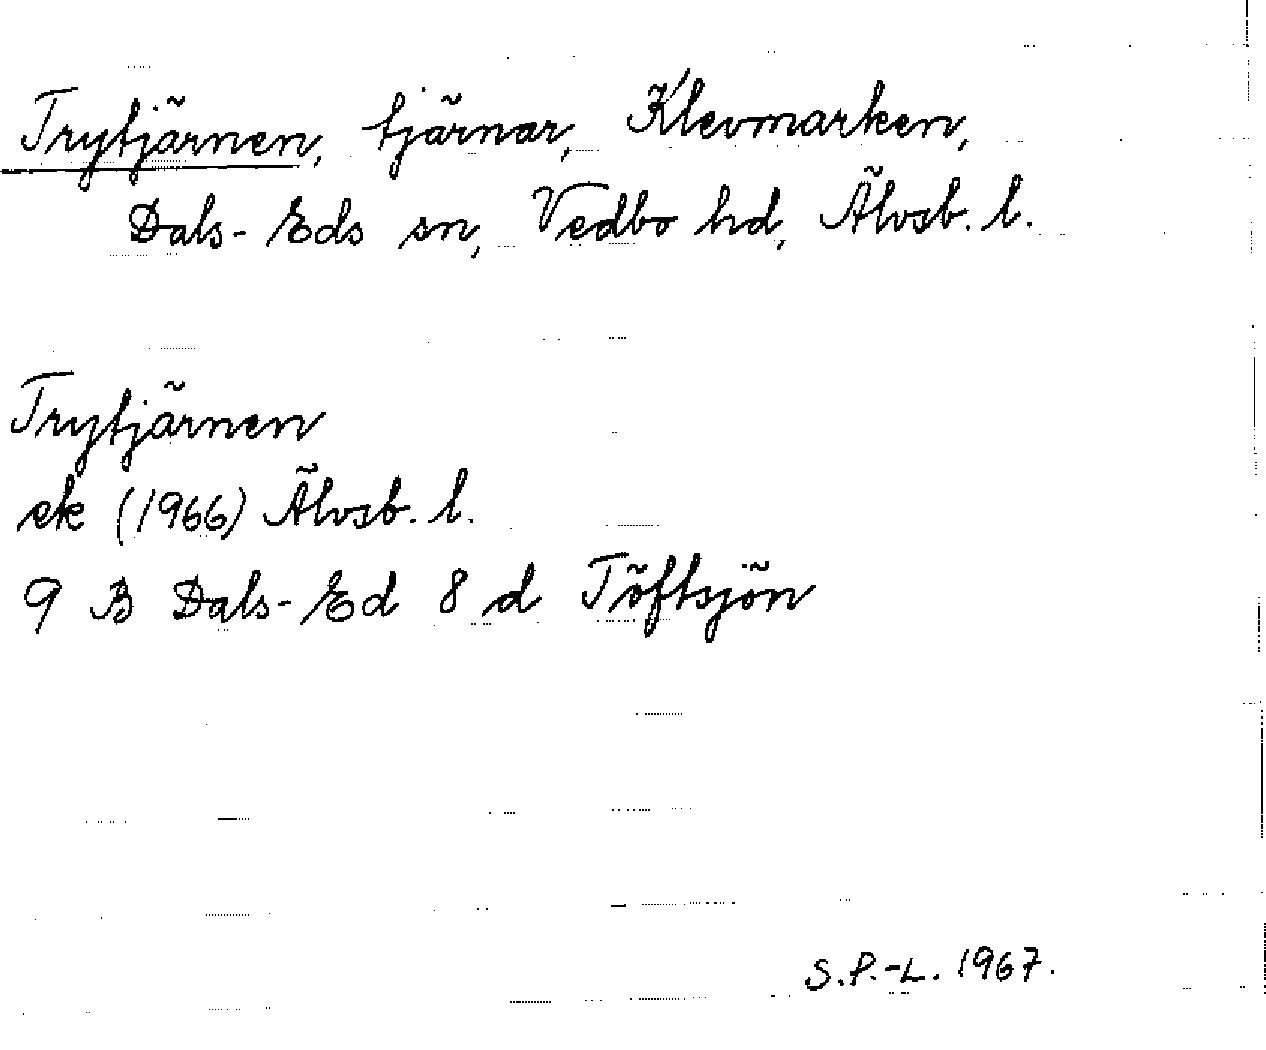 Trytjärnen, tjärnar, Klevmarken,
Dals-Eds sn, Vedbo hd, Älvsb. l.
Trytjärnen
ek (1966) Älvsb. l.
9 B Dals-Ed 8 d Töftsjön
S.P.-L. 1967.